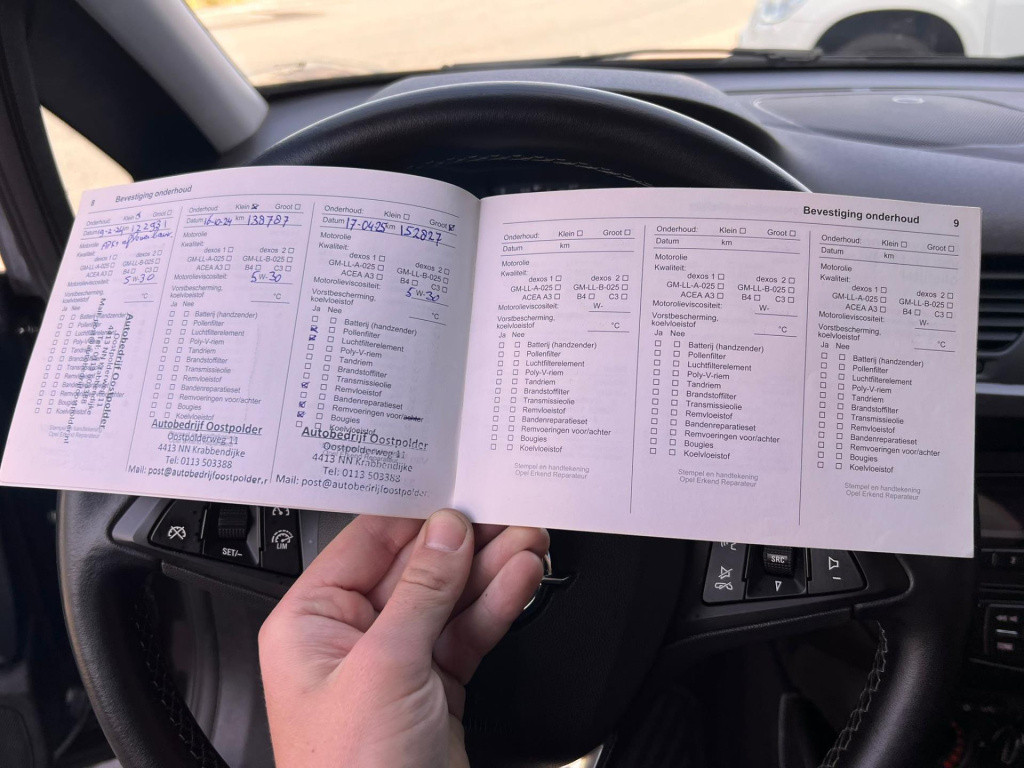 8 Bevestiging onderhoud
Onderhoud: Klein Groot
Datum km
Motorolie
Kwaliteit:
dexos 1 dexos 2
GM-LL-A-025 GM-LL-B-025
ACEA A3 B4 C3
Motorolieviscositeit: 5W-30
°C
Vorstbescherming,
koelvloeistof
Ja Nee
Batterij (handzender)
Pollenfilter
Luchtfilterelement
Poly-V-riem
Tandriem
Brandstoffilter
Transmissieolie
Remvloeistof
Bandenreparatieset
Remvoeringen
Bougies
Koelvloeistof
Autobedrijf Oostpolder
Oostpolderweg 11
4413 NN Krabbendijke
Onderhoud: Klein Groot
Datum 16-10-24 km 138787
Motorolie
Kwaliteit:
dexos 1 dexos 2
GM-LL-A-025 GM-LL-B-025
ACEA A3 B4 C3
Motorolieviscositeit: 5W-30
Vorstbescherming,
koelvloeistof °C
Ja Nee
Batterij (handzender)
Pollenfilter
Luchtfilterelement
Poly-V-riem
Tandriem
Brandstoffilter
Transmissieolie
Remvloeistof
Bandenreparatieset
Remvoeringen voor/achter
Bougies
Koelvloeistof
Autobedrijf Oostpolder
Oostpolderweg 11
4413 NN Krabbendijke
Tel: 0113 503388
Mail: post@autobedrijfoostpolder.r
Onderhoud: Klein Groot
Datum 17-0425 km 152827
Motorolie
Kwaliteit:
dexos 1 dexos 2
GM-LL-A-025 GM-LL-B-025
ACEA A3 B4 C3
Motorolieviscositeit: 5W-30
Vorstbescherming,
koelvloeistof °C
Ja Nee
Batterij (handzender)
Pollenfilter
Luchtfilterelement
Poly-V-riem
Tandriem
Brandstoffilter
Transmissieolie
Remvloeistof
Bandenreparatieset
Remvoeringen voor/achter
Bougies
Koelvloeistof
Autobedrijf Oostpolder
Oostpolderweg 11
4413 NN Krabbendijke
Tel: 0113 503388
Mail: post@autobedrijfoostpolder
Bevestiging onderhoud 9
Onderhoud: Klein Groot
Datum km
Motorolie
Kwaliteit:
dexos 1 dexos 2
GM-LL-A-025 GM-LL-B-025
ACEA A3 B4 C3
Motorolieviscositeit: W-
Vorstbescherming,
koelvloeistof °C
Ja Nee
Batterij (handzender)
Pollenfilter
Luchtfilterelement
Poly-V-riem
Tandriem
Brandstoffilter
Transmissieolie
Remvloeistof
Bandenreparatieset
Remvoeringen voor/achter
Bougies
Koelvloeistof
Stempel en handtekening
Opel Erkend Reparateur
Onderhoud: Klein Groot
Datum km
Motorolie
Kwaliteit:
dexos 1 dexos 2
GM-LL-A-025 GM-LL-B-025
ACEA A3 B4 C3
Motorolieviscositeit: W-
Vorstbescherming,
koelvloeistof °C
Ja Nee
Batterij (handzender)
Pollenfilter
Luchtfilterelement
Poly-V-riem
Tandriem
Brandstoffilter
Transmissieolie
Remvloeistof
Bandenreparatieset
Remvoeringen voor/achter
Bougies
Koelvloeistof
Stempel en handtekening
Opel Erkend Reparateur
Onderhoud: Klein Groot
Datum km
Motorolie
Kwaliteit:
dexos 1 dexos 2
GM-LL-A-025 GM-LL-B-025
ACEA A3 B4 C3
Motorolieviscositeit: W-
Vorstbescherming,
koelvloeistof °C
Ja Nee
Batterij (handzender)
Pollenfilter
Luchtfilterelement
Poly-V-riem
Tandriem
Brandstoffilter
Transmissieolie
Remvloeistof
Bandenreparatieset
Remvoeringen voor/achter
Bougies
Koelvloeistof
Stempel en handtekening
Opel Erkend Reparateur
SET/-
LIM
SRC